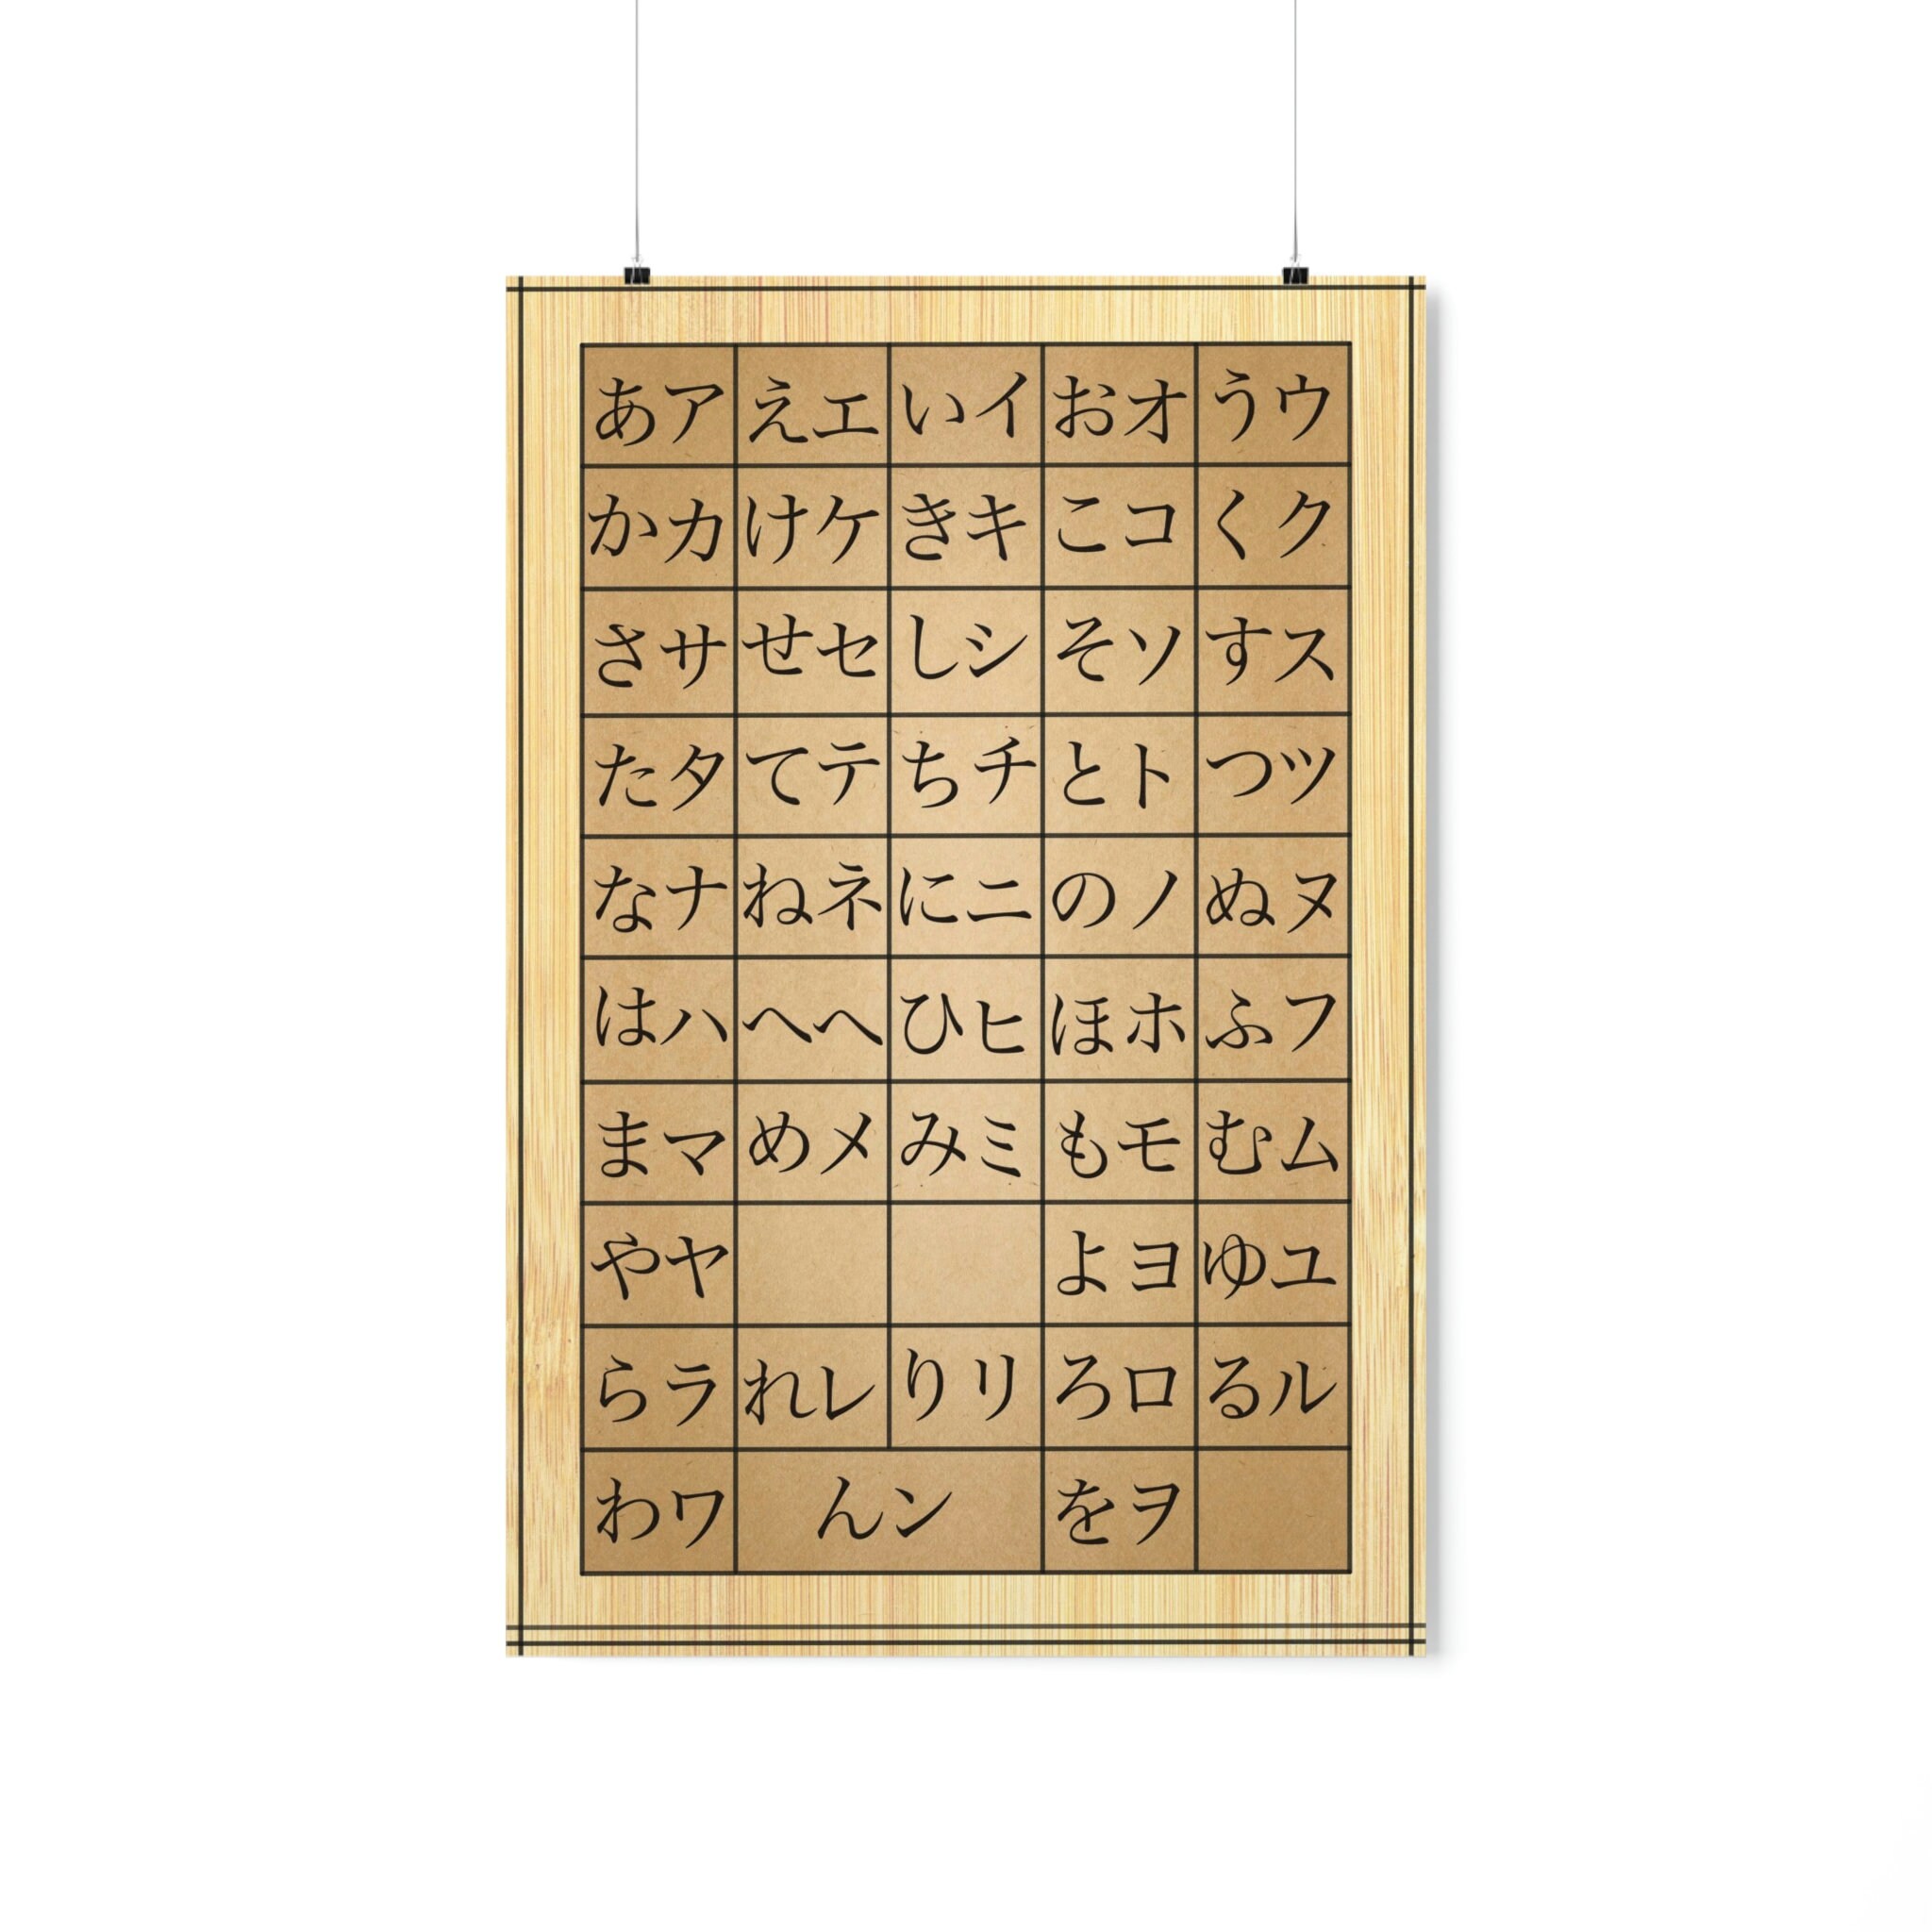 あア えエ いイ おオ うウ
かカ けケ きキ こコ くク
さサ せセ しシ そソ すス
たタ てテ ちチ とト つツ
なナ ねネ にニ のノ ぬヌ
はハ へヘ ひヒ ほホ ふフ
まマ めメ みミ もモ むム
やヤ よヨ ゆユ
らラ れレ りリ ろロ るル
わワ んン をヲ